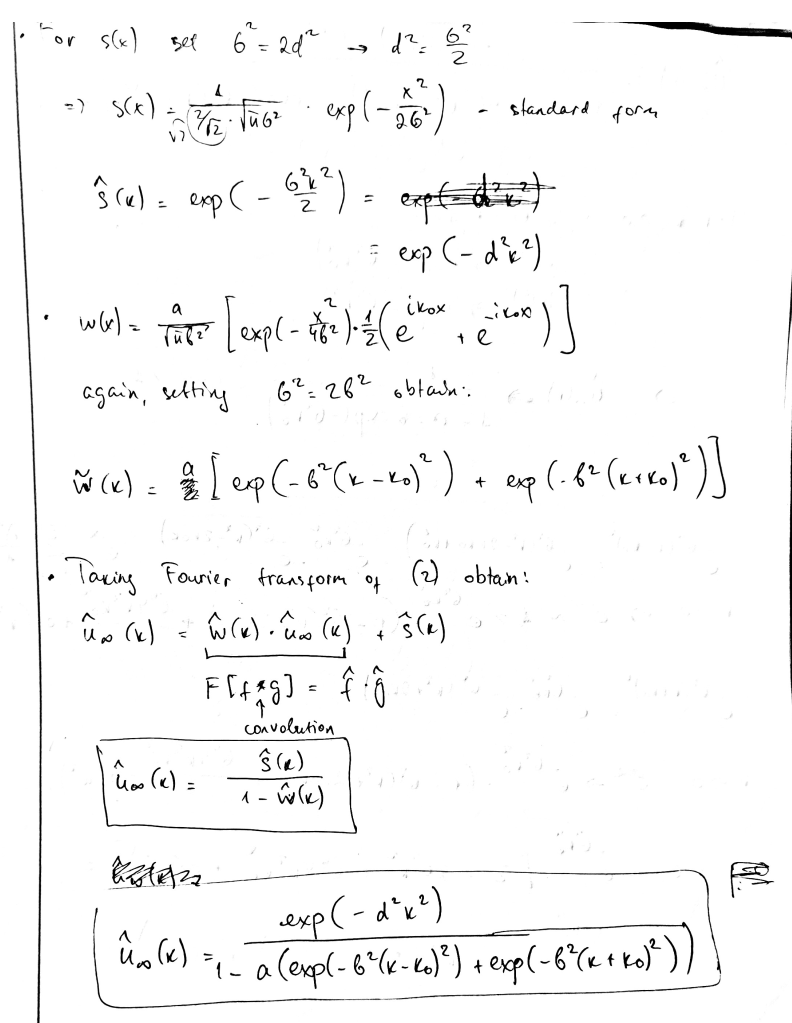 • For s(x) set σ² = 2d² → d² = σ²/2
=> s(x) = 1/(²/√2 · √πσ²) · exp(- x²/2σ²) - standard form
ŝ(k) = exp(- σ²k²/2) = exp(- d²k²)
= exp(- d²k²)
• w(x) = a/√πb² [exp(- x²/4b²) · 1/2 (e^{ik₀x} + e^{-ik₀x})]
again, setting σ² = 2b² obtain:
w̃(k) = a [exp(-b²(k - k₀)²) + exp(-b²(k+k₀)²)]
• Taking Fourier transform of (2) obtain:
û∞(k) = ŵ(k) · û∞(k) + ŝ(k)
F[f*g] = f̂ · ĝ
↑
convolution
û∞(k) = ŝ(k)/(1 - ŵ(k))
û∞(k) = exp(- d²k²)/(1 - a(exp(-b²(k-k₀)²) + exp(-b²(k+k₀)²)))